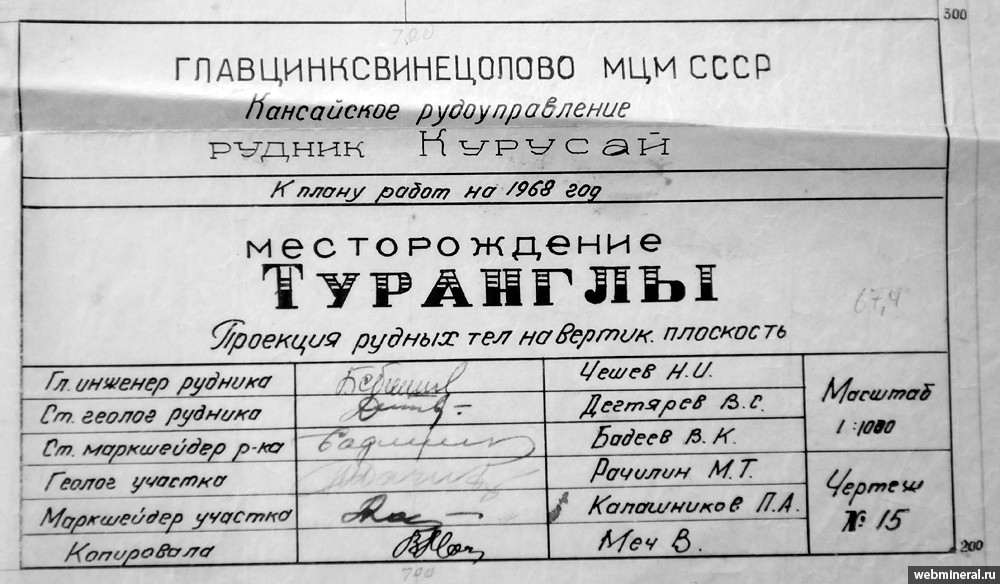 300
700
ГЛАВЦИНКСВИНЕЦОЛОВО МЦМ СССР
Кансайское рудоуправление
РУДНИК КУРУСАЙ
К плану работ на 1968 год
МЕСТОРОЖДЕНИЕ
ТУРАНГЛЫ
67,4
Проекция рудных тел на вертик. плоскость
Гл. инженер рудника Чешев Н.И.
Ст. геолог рудника Дегтярев В.С.
Ст. маркшейдер р-ка Бадеев В.К.
Геолог участка Рачилин М.Т.
Маркшейдер участка Калашников П.А.
Копировала Меч В.
Масштаб
1:1000
Чертеж
№ 15
200
700
webmineral.ru